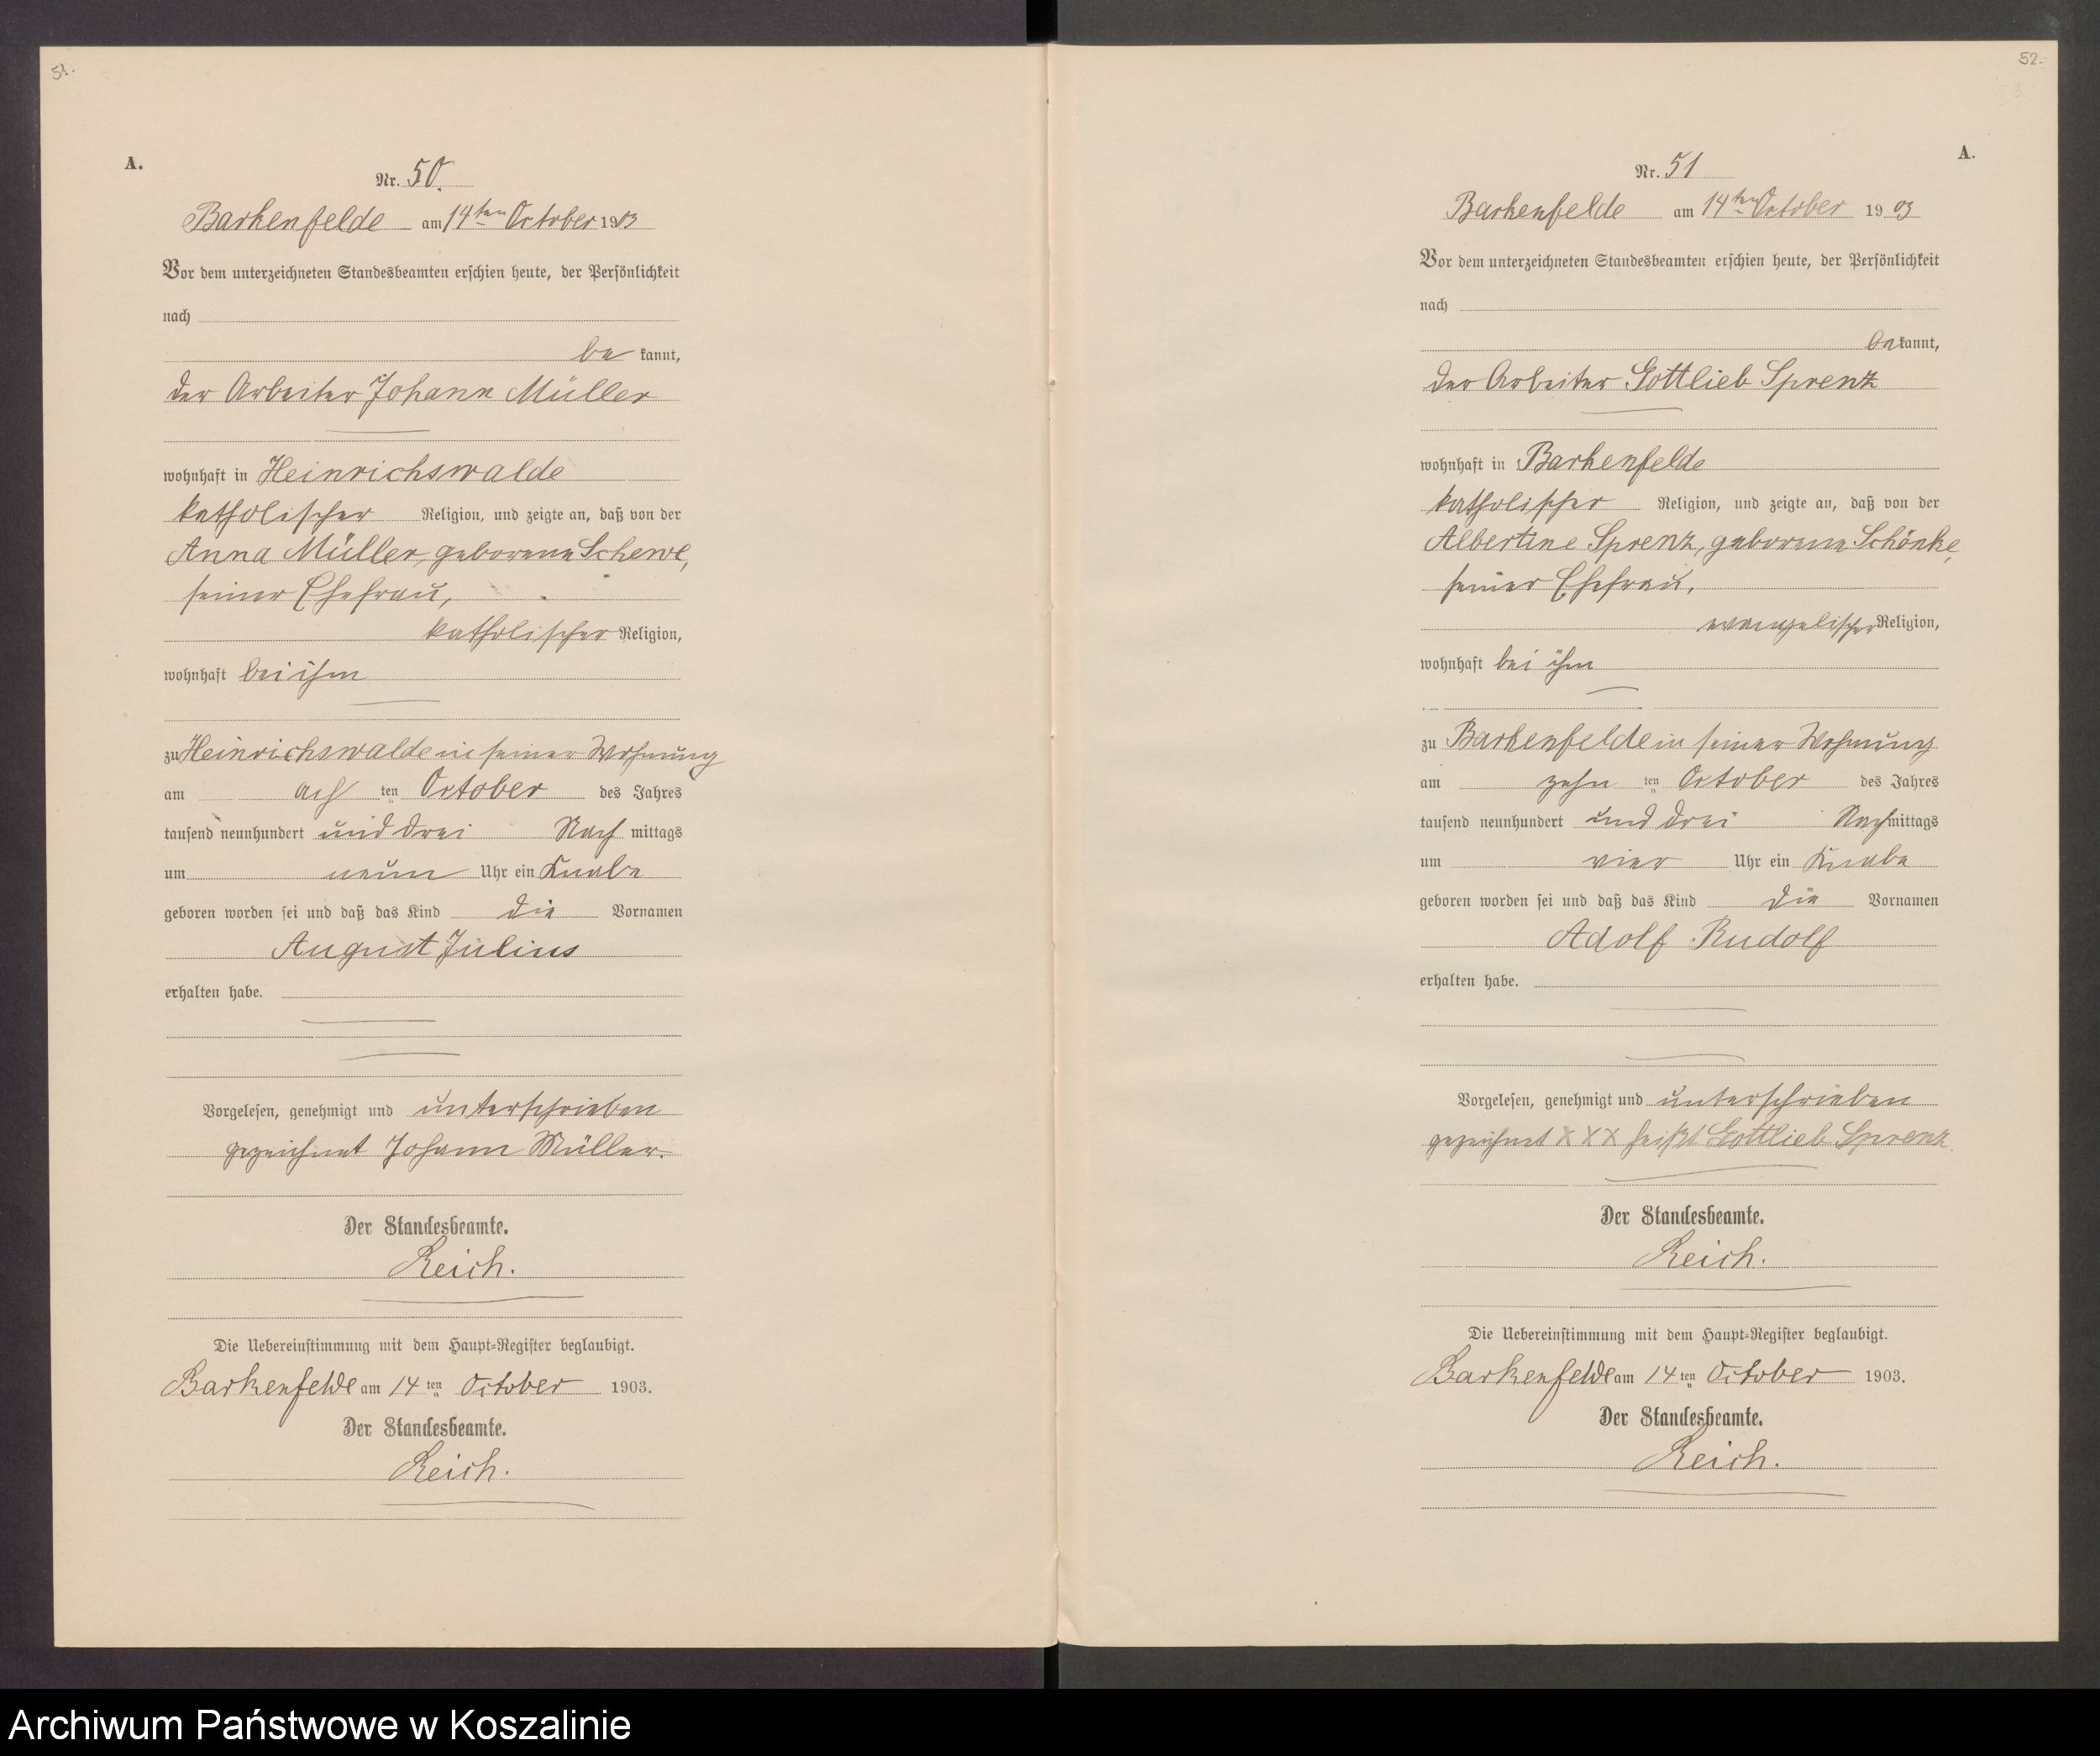 51.
A.
Nr. 50.
Barkenfelde am 14ten October 1903
Vor dem unterzeichneten Standesbeamten erschien heute, der Persönlichkeit
nach
be kannt,
der Arbeiter Johann Müller
wohnhaft in Heinrichswalde
katholischer Religion, und zeigte an, daß von der
Anna Müller, geborene Schewe,
seiner Ehefrau,
katholischer Religion,
wohnhaft bei ihm
zu Heinrichswalde in seiner Wohnung
am ach ten October des Jahres
tausend neunhundert und drei Nach mittags
um neun Uhr ein Knabe
geboren worden sei und daß das Kind die Vornamen
August Julius
erhalten habe.
Vorgelesen, genehmigt und unterschrieben
gezeichnet Johann Müller.
Der Standesbeamte.
Reich.
Die Uebereinstimmung mit dem Haupt=Register beglaubigt.
Barkenfelde am 14 ten October 1903.
Der Standesbeamte.
Reich.
52.
A.
Nr. 51
Barkenfelde am 14ten October 1903
Vor dem unterzeichneten Standesbeamten erschien heute, der Persönlichkeit
nach
be kannt,
der Arbeiter Gottlieb Sprenz
wohnhaft in Barkenfelde
katholischer Religion, und zeigte an, daß von der
Albertine Sprenz, geborene Schönke,
seiner Ehefrau,
evangelischer Religion,
wohnhaft bei ihm
zu Barkenfelde in seiner Wohnung
am zehn ten October des Jahres
tausend neunhundert und drei Nach mittags
um vier Uhr ein Knabe
geboren worden sei und daß das Kind die Vornamen
Adolf Rudolf
erhalten habe.
Vorgelesen, genehmigt und unterschrieben
gezeichnet X X X heißt Gottlieb Sprenz.
Der Standesbeamte.
Reich.
Die Uebereinstimmung mit dem Haupt=Register beglaubigt.
Barkenfelde am 14 ten October 1903.
Der Standesbeamte.
Reich.
Archiwum Państwowe w Koszalinie